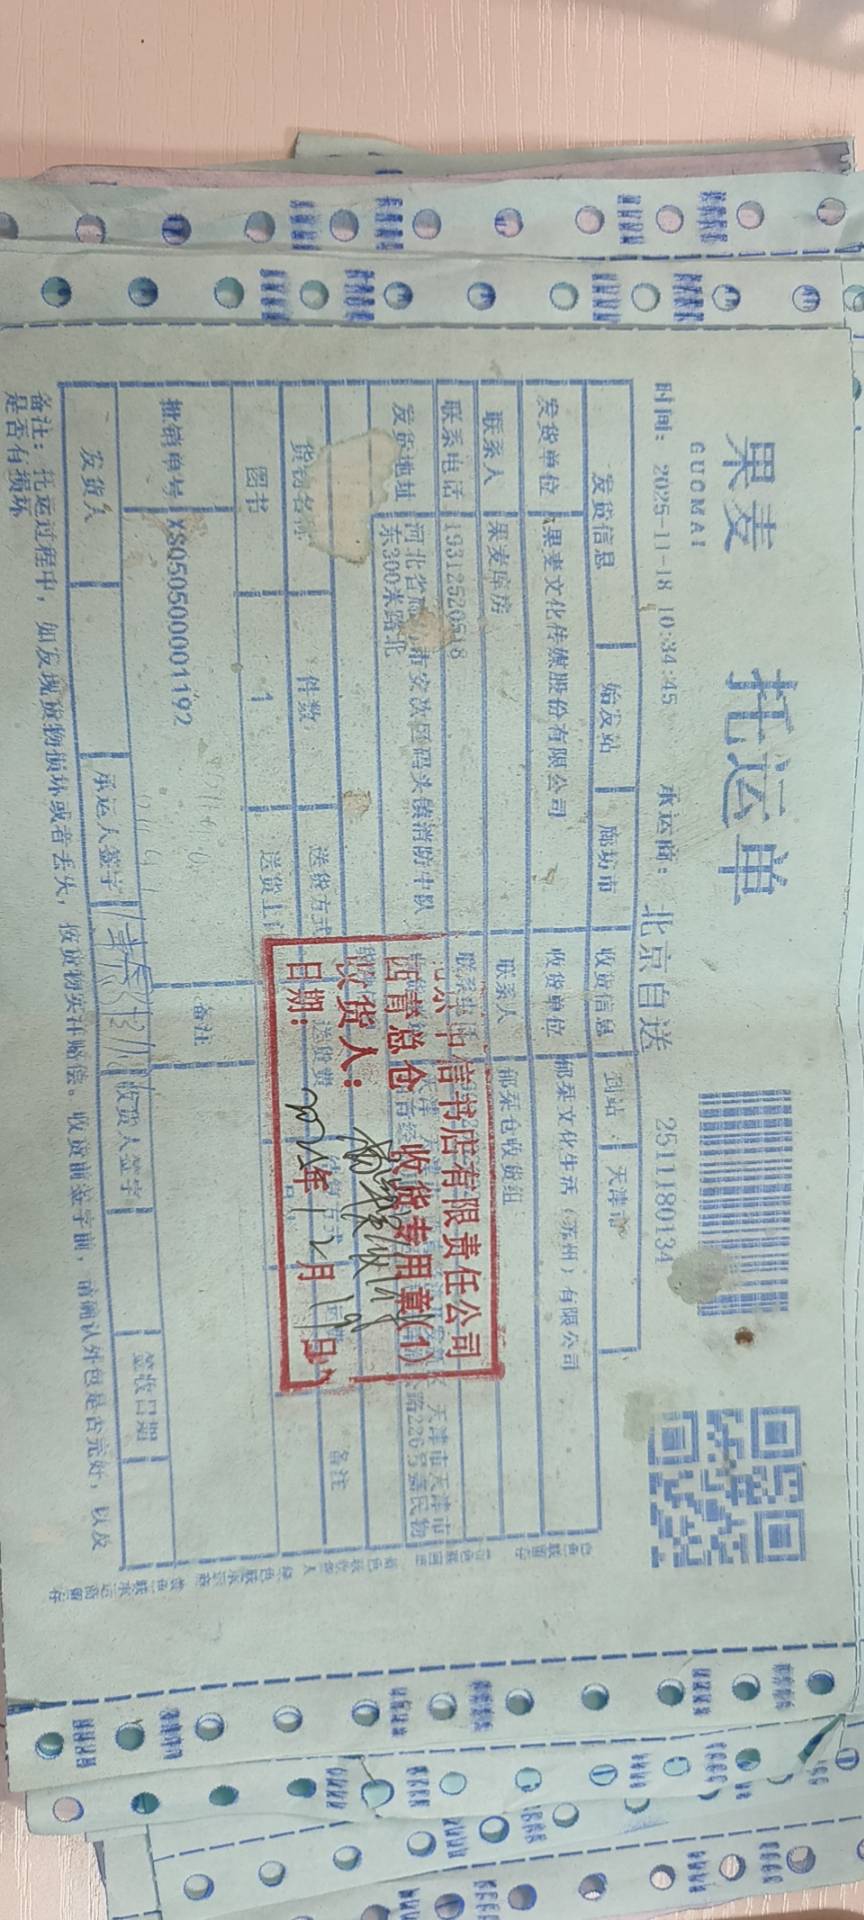 果麦 托运单
GUOMAI
时间: 2025-11-18 10:34:45 承运商: 北京自送 2511180134
发货信息 始发站 廊坊市 收货信息 到站: 天津市
发货单位 果麦文化传媒股份有限公司 收货单位 郁栞文化生活(苏州)有限公司
联系人 果麦库房 联系人 郁栞仓收货组
联系电话 19312520518 联系电话
发货地址 河北省廊坊市安次区码头镇消防中队
东300米路北
天津市天津市
路226号嘉民物
货物名称: 件数: 送货方式 送货费 备注
图书 1 送货上门
批销单号 XS050500001192 备注
发货人 承运人签字 收货人签字 签收日期
备注: 托运过程中, 如发现货物损坏或者丢失, 按货物实计赔偿。收货前签字前, 请确认外包是否完好, 以及
是否有损坏
中信书店有限责任公司
西青总仓 收货专用章(1)
收货人:
日期: 2025年12月19日